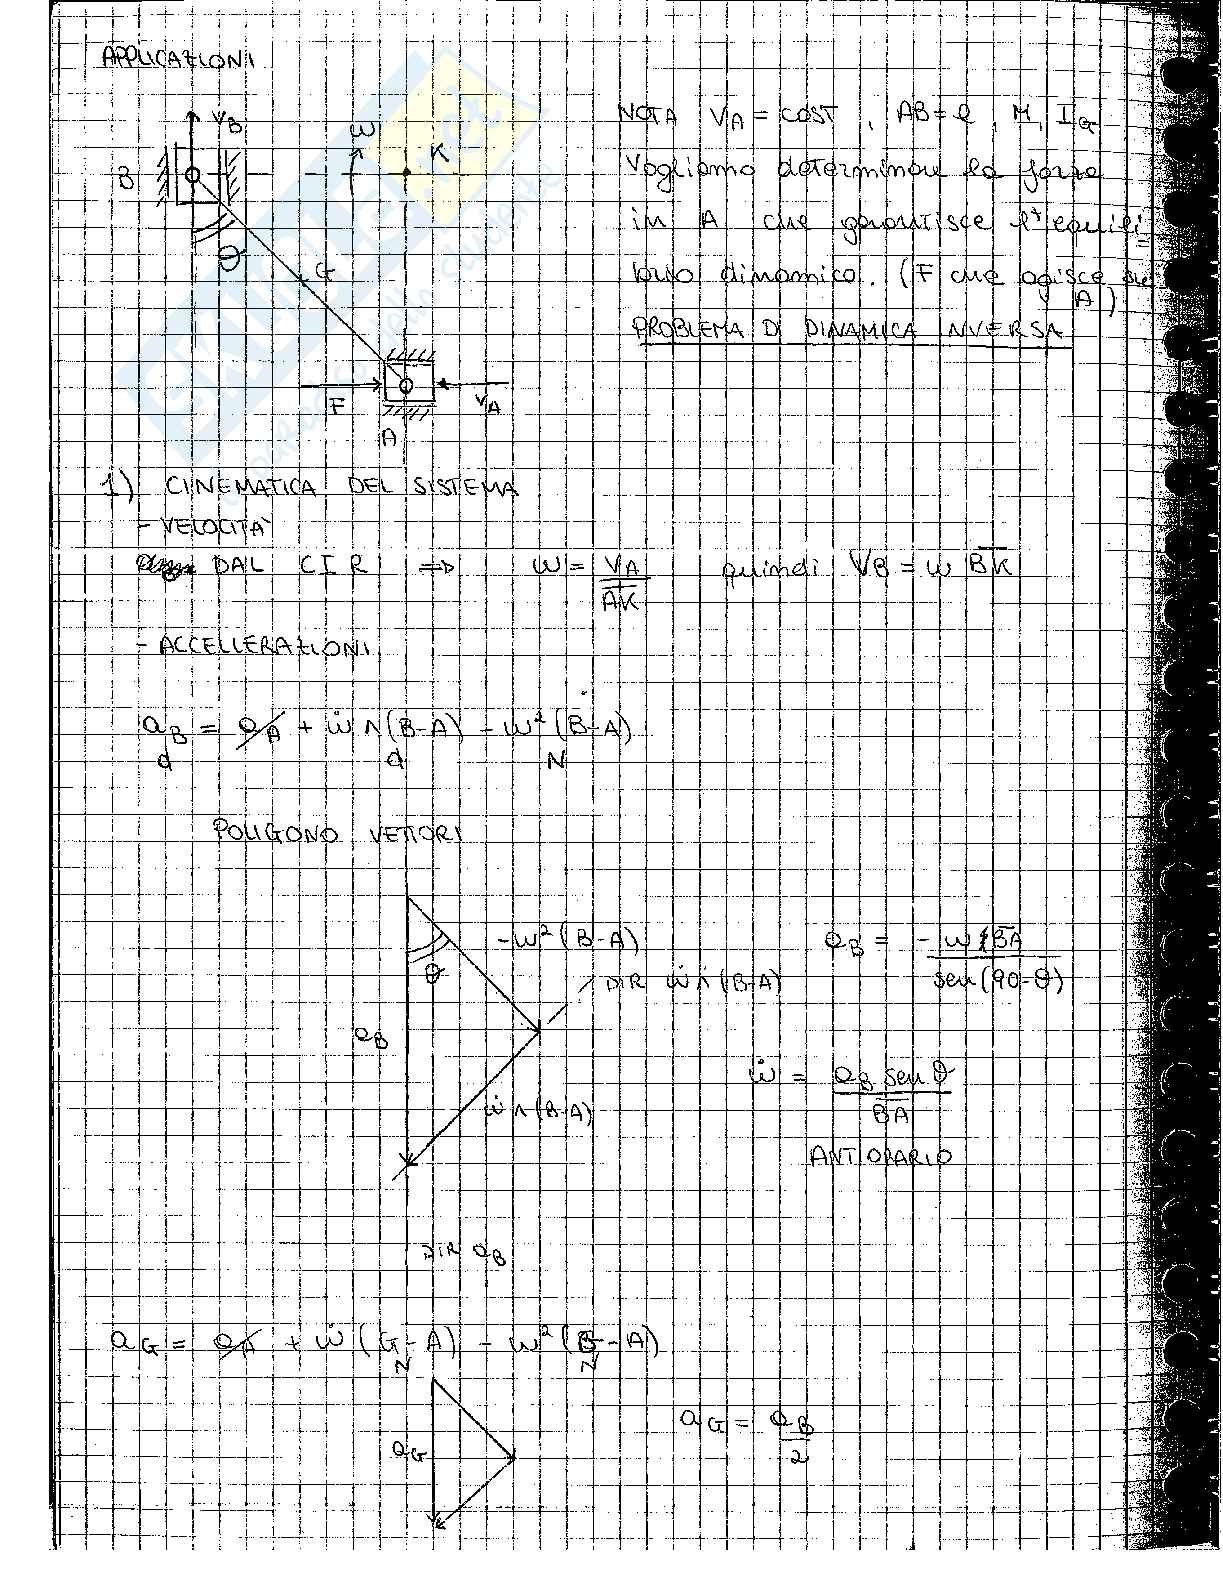 APPLICAZIONI
NOTA VA = COST, AB = l, M, IG
Vogliamo determinare la forza
in A che garantisce l'equili=
brio dinamico. (F che agisce su A)
PROBLEMA DI DINAMICA INVERSA
VB
ω
K
B
θ
G
F
VA
A
1) CINEMATICA DEL SISTEMA
- VELOCITÀ
DAL CIR ⇒ ω = VA / AK quindi VB = ω BK
- ACCELLERAZIONI
aB = aA + ω̇ ∧ (B-A) - ω² (B-A)
d d N
POLIGONO VETTORI
-ω² (B-A)
θ
DIR ω̇ ∧ (B-A)
aB
ω̇ ∧ (B-A)
DIR aB
aB = - ω² BA / sen(90-θ)
ω̇ = aB sen θ / BA
ANTIORARIO
aG = aA + ω̇ (G-A) - ω² (G-A)
N N
aG
aG = aB / 2